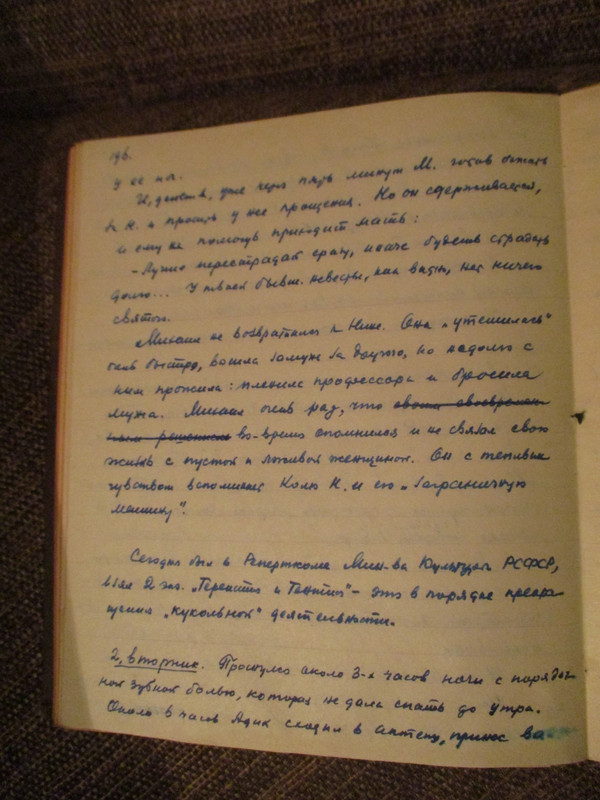 196.
у её ног.
И, действ, уже через пять минут М. готов бежать
к Н. и просить у нее прощения. Но он сдерживается,
и ему на помощь приходит мать:
– Лучше перестрадай сразу, иначе будешь страдать
долго... У твоей бывш. невесты, как видно, нет ничего
святого.
Михаил не возвратился к Нине. Она „утешилась"
очень быстро, вышла замуж за другого, но недолго с
ним прожила: пленила профессора и бросила
мужа. Михаил очень рад, что своим своевремен-
ным решением во-время опомнился и не связал свою
жизнь с пустой и лживой женщиной. Он с теплым
чувством вспоминает Колю К. и его „заграничную
машину".
Сегодня был в Реперткоме Мин-ва Культуры РСФСР,
взял 2 экз. – это в порядке прекра-
щения „кукольной" деятельности.
2, вторник. Проснулся около 3-х часов ночи с порядоч-
ной зубной болью, которая не дала спать до утра.
Около 8 часов Адик сходил в аптеку, принес ва-